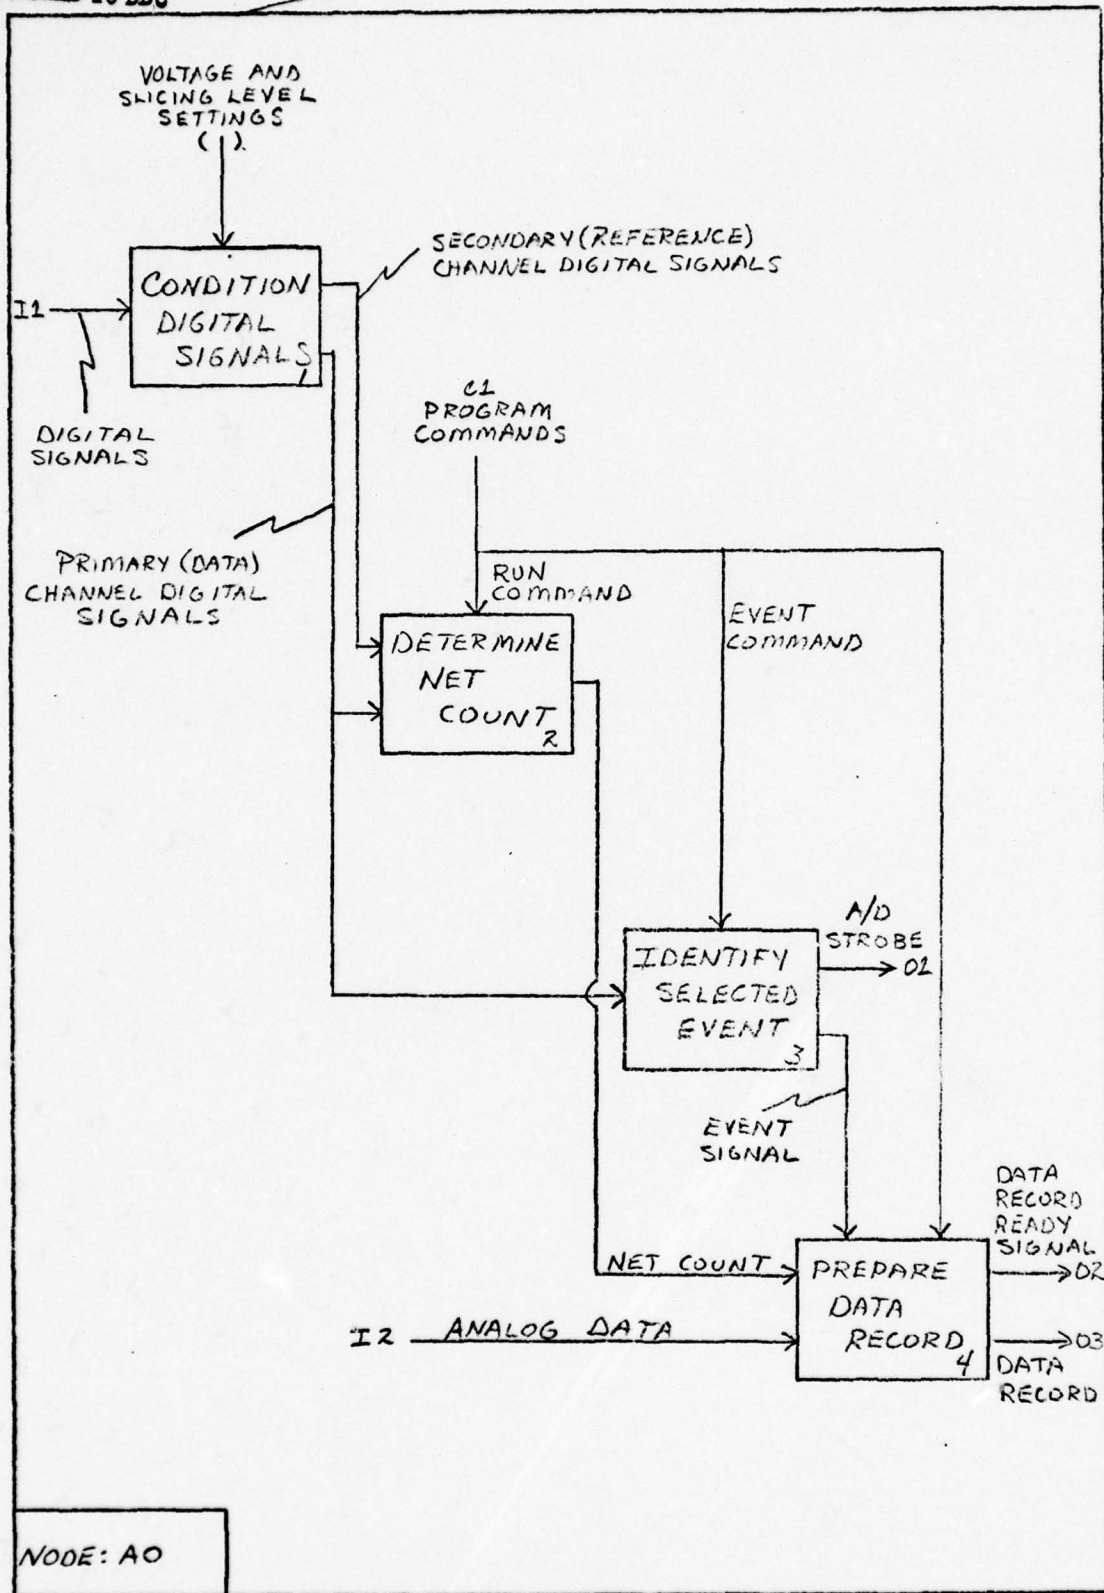 VOLTAGE AND
SLICING LEVEL
SETTINGS
( )
SECONDARY (REFERENCE)
CHANNEL DIGITAL SIGNALS
CONDITION
DIGITAL
SIGNALS
1
I1
DIGITAL
SIGNALS
C1
PROGRAM
COMMANDS
PRIMARY (DATA)
CHANNEL DIGITAL
SIGNALS
RUN
COMMAND
EVENT
COMMAND
DETERMINE
NET
COUNT
2
A/D
STROBE
O1
IDENTIFY
SELECTED
EVENT
3
EVENT
SIGNAL
DATA
RECORD
READY
SIGNAL
O2
NET COUNT
PREPARE
DATA
RECORD
4
I2 ANALOG DATA
O3
DATA
RECORD
NODE: AO